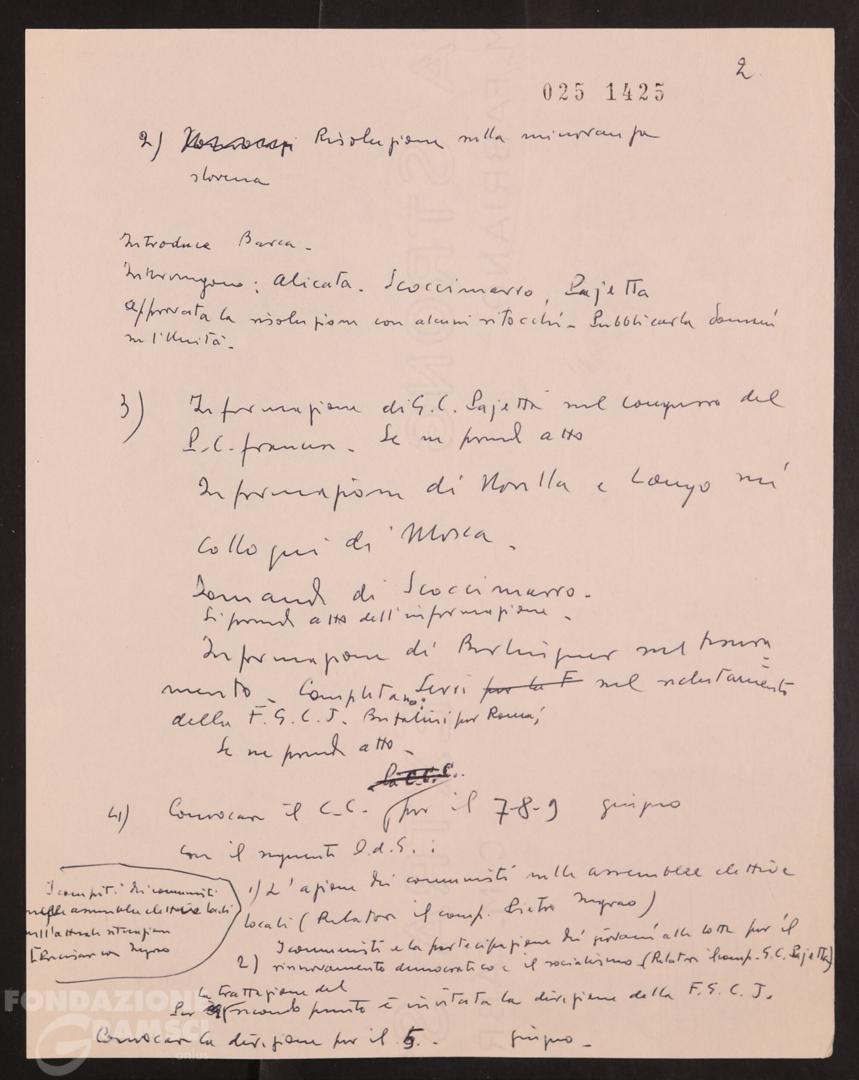 2
025 1425
2) Risoluzione sulla minoranza
slovena
Introduce Barca -
Intervengono: Alicata - Scoccimarro, Pajetta
Approvata la risoluzione con alcuni ritocchi - Pubblicarla domani
su l'Unità -
3) Informazione di G.C. Pajetta sul congresso del
P.C. francese - Se ne prende atto
Informazione di Novella e Longo sui
colloqui di Mosca -
Domande di Scoccimarro -
Si prende atto dell'informazione -
Informazione di Berlinguer sul tessera=
mento - Completano: Serri per la F sul reclutamento
della F.G.C.I. Bufalini per Roma;
Se ne prende atto -
la C.C.C.
4) Convocare il C.C. per il 7-8-9 giugno
con il seguente O.d.G.:
1) L'azione dei comunisti nelle assemblee elettive
locali (Relatore il comp. Pietro Ingrao)
2) I comunisti e la partecipazione dei giovani alla lotta per il
rinnovamento democratico e il socialismo (Relatore il comp. G.C. Pajetta)
I compiti dei comunisti
nelle assemblee elettive locali
nell'attuale situazione
Precisare con Ingrao
la trattazione del
Per secondo punto è invitata la direzione della F.G.C.I.
Convocare la direzione per il 5 - giugno -
FONDAZIONE
GRAMSCI
onlus